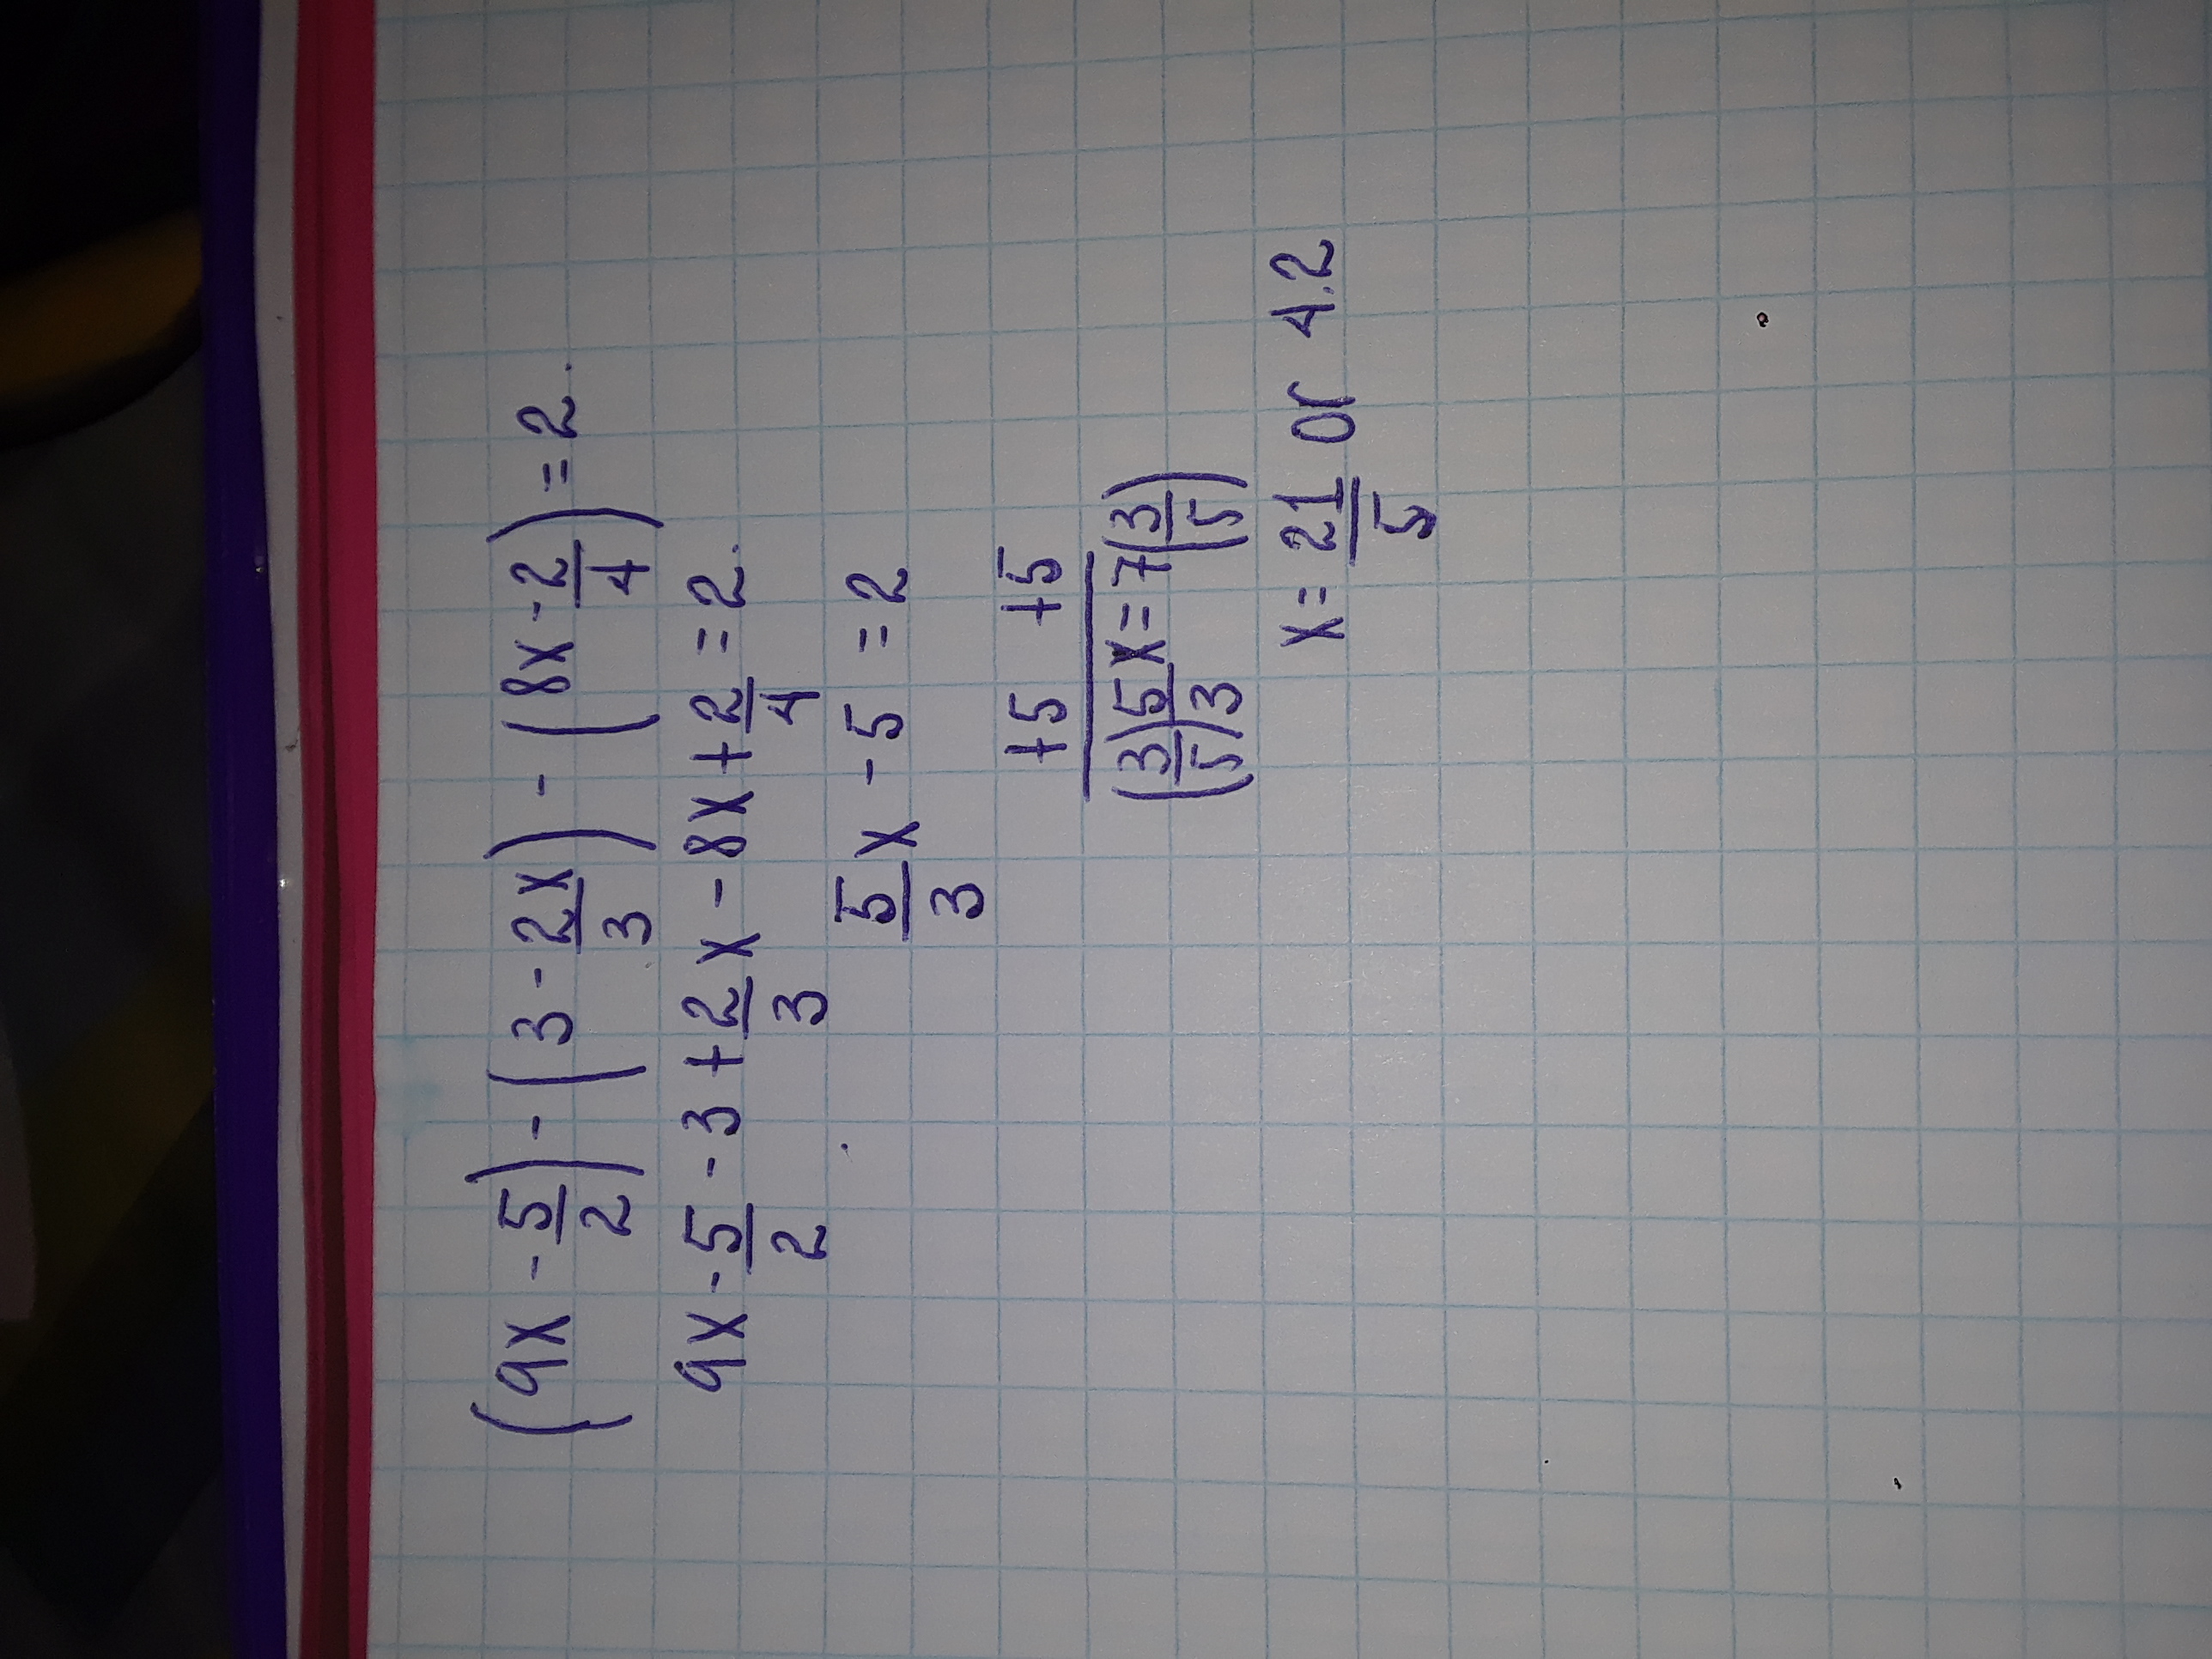 (9x - 5/2) - (3 - 2x/3) - (8x - 2/4) = 2.
9x - 5/2 - 3 + 2/3 x - 8x + 2/4 = 2.
5/3 x - 5 = 2
+5 +5
(3/5) 5/3 x = 7 (3/5)
x = 21/5 or 4.2